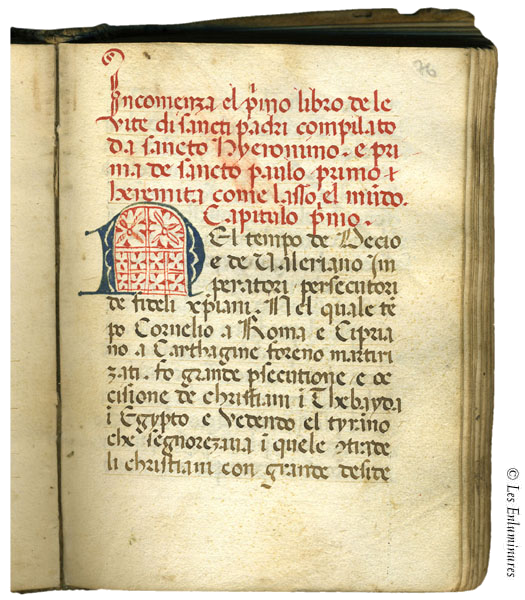 76
Incomenza el p̄mo libro de le
vite di sancti padri compilato
da sancto Hyeronimo . e pri
ma de sancto paulo primo
heremita come lasso el mūdo.
Capitulo p̄mo .
NEl tempo de Decio
e de Valeriano Im
peratori persecutori
de fideli xp̄iani . Nel quale tē
po Cornelio a Roma e Cipria
no a Carthagine foreno martiri
zati . fo grande ꝑsecutione e oc
cisione de christiani ī Thebayda
i Egypto e Vedendo el tyrāno
che segnorezaua ī quele ꝯtrade
li christiani con grande deside
© Les Enluminures